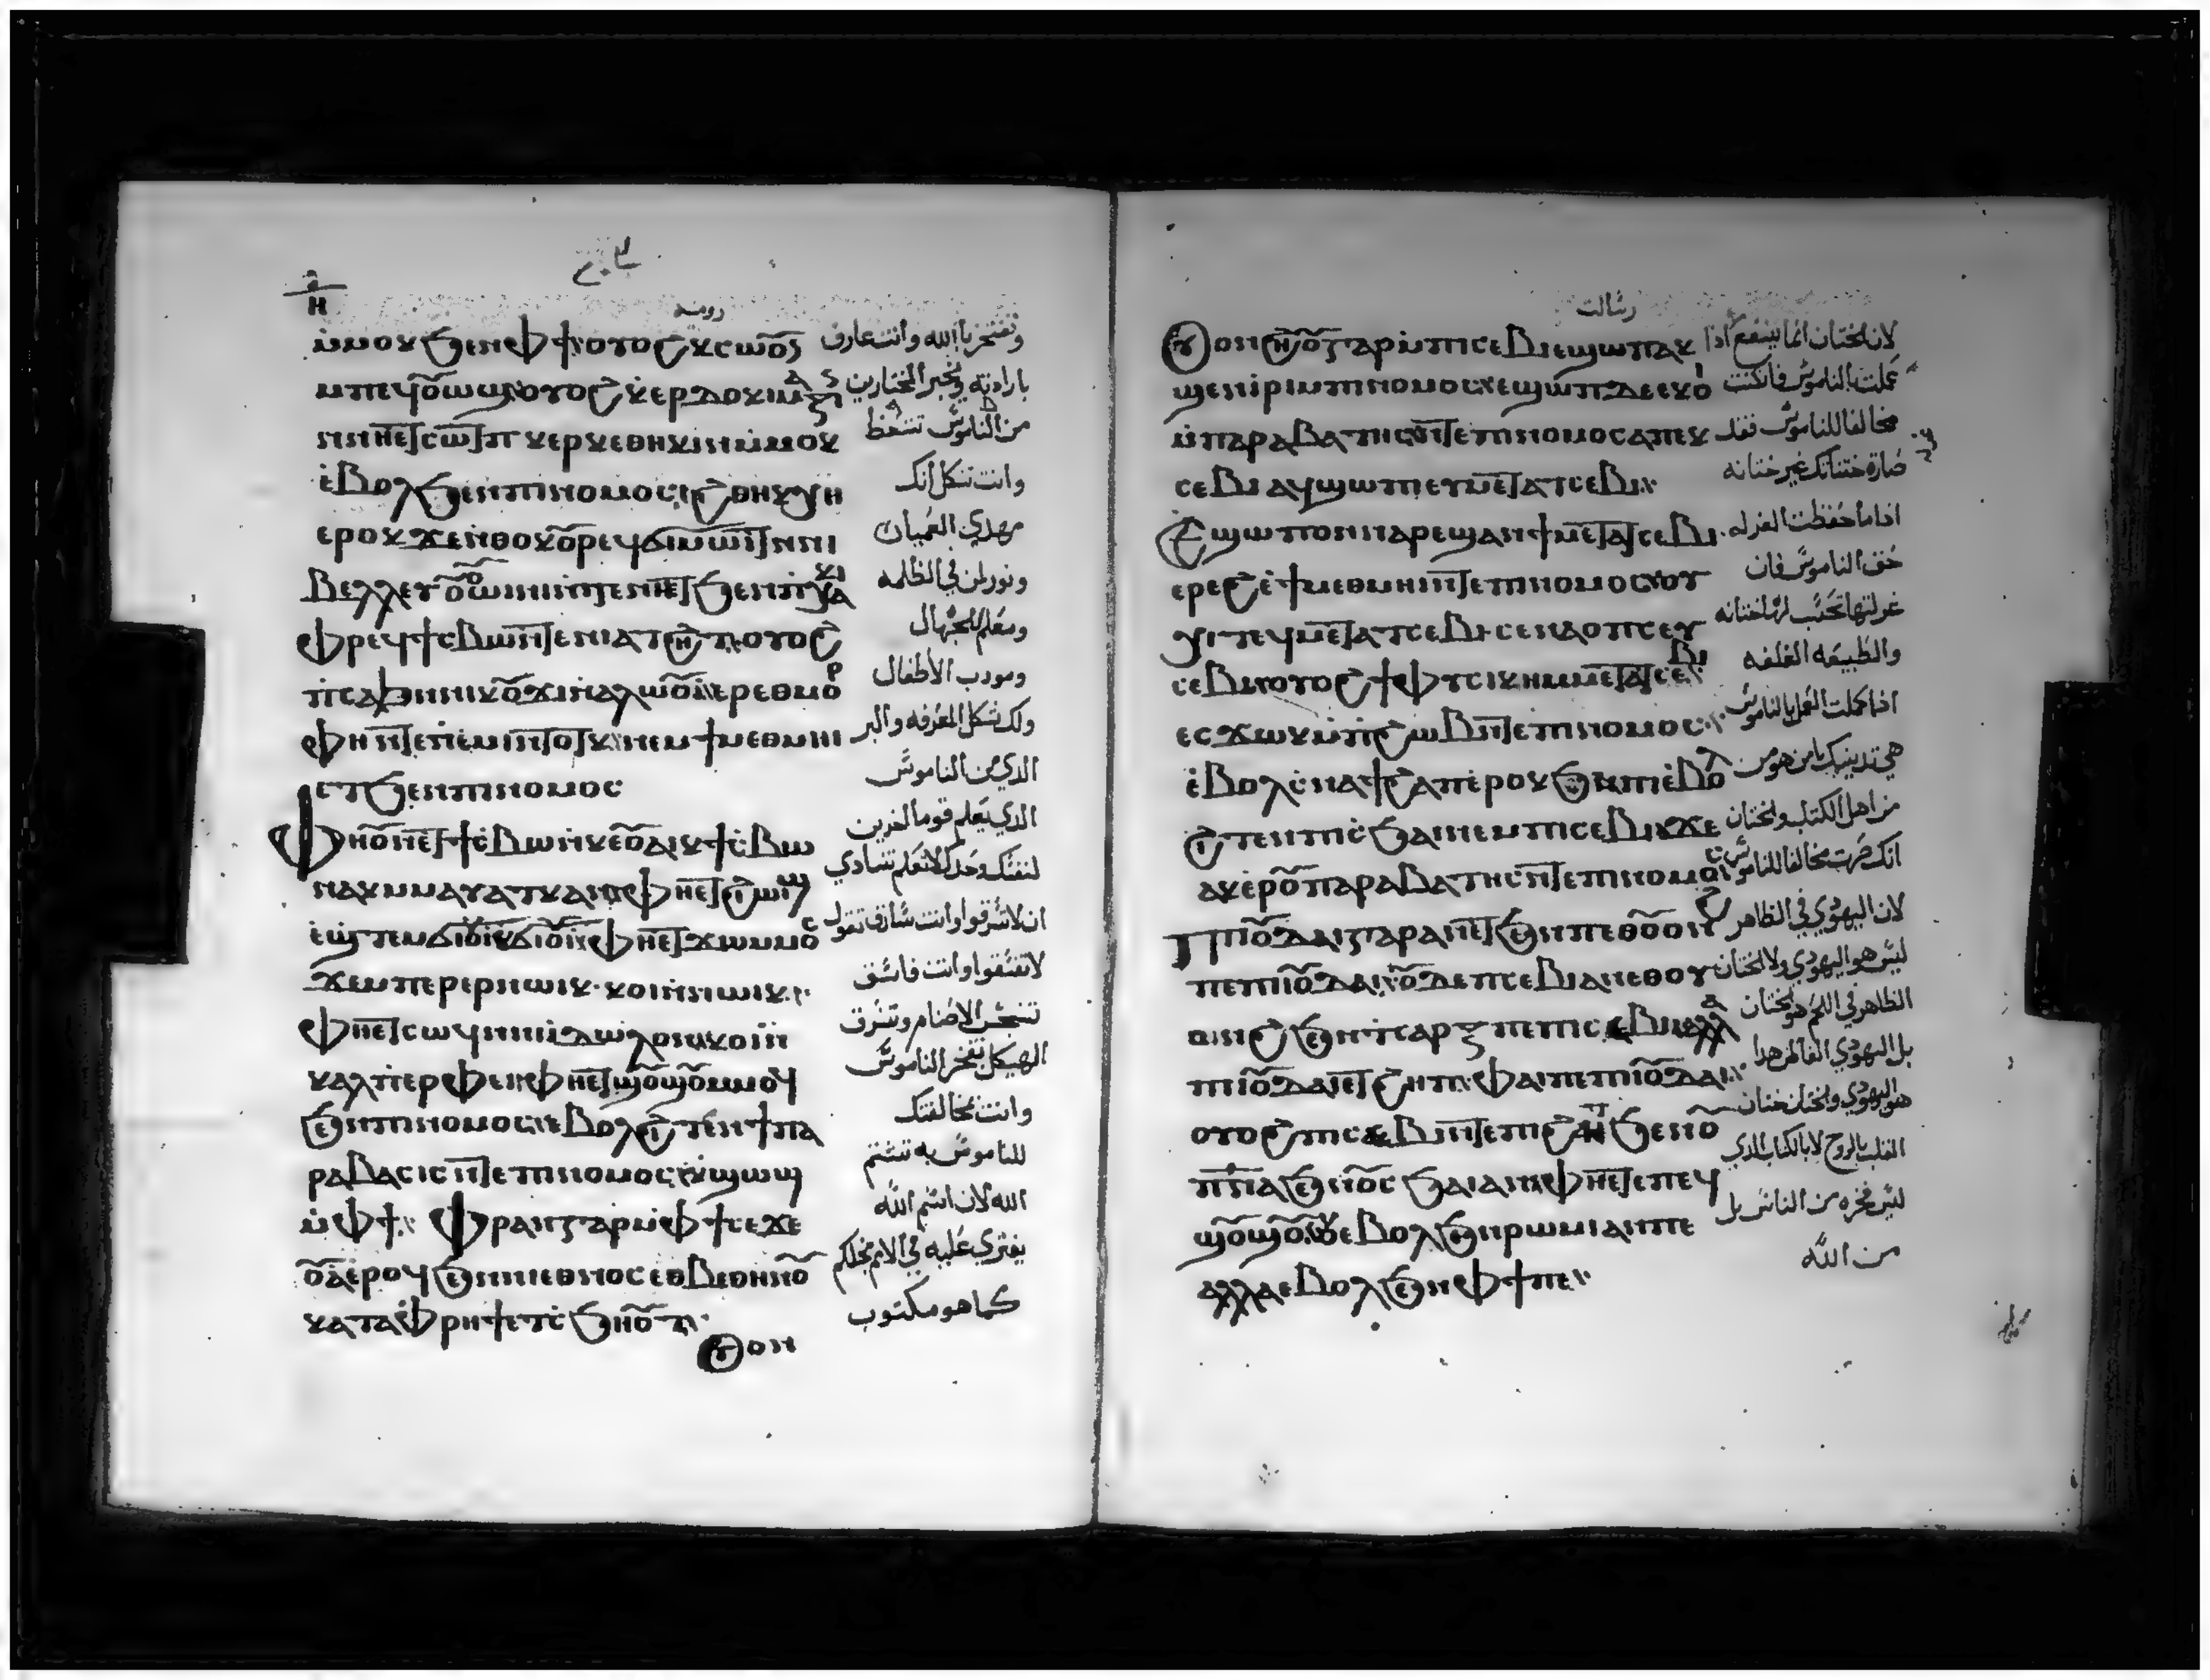 ⲏ
رومية
ⲙ̀ⲙⲟⲕ ϧⲉⲛⲫϯ ⲟⲩⲟϩ ⲕⲥⲱⲟ̅ⲩ وتفتخر بالله وانت عارف
ⲙⲡⲉϥⲟ̅ⲱϣ ⲟⲩⲟϩ ⲕ̀ⲉⲣⲇⲟⲕⲓⲙⲁⲍⲓ بارادته وتخبر المختارين
ⲛⲛⲏⲉⲧⲥⲱⲧⲡ ⲕⲉⲣⲕⲉⲑⲏⲕⲓⲛ ⲙ̀ⲙⲟⲕ من الناموس
ⲉ̀ⲃⲟⲗϧⲉⲛ ⲡⲓⲛⲟⲙⲟⲥ ϩⲑⲏⲕ ⲭⲏ وانت تتكل انك
ⲉⲣⲟⲕ ϫⲉⲛ̀ⲑⲟⲕ ⲟ̅ⲣⲉϥϭⲓⲙⲱⲓⲧ ⲛⲛⲓ مهدي العميان
ⲃⲉⲗⲗⲉⲩ ⲟ̅ⲩⲱⲓⲛⲓ ⲛⲧⲉⲛⲏⲉⲧϧⲉⲛ ⲡⲭⲁⲕⲓ ونور لمن في الظلمه
ⲫⲣⲉϥϯⲥⲃⲱ ⲛ̀ⲧⲉ ⲛⲓⲁⲧϩⲏⲧ ⲟⲩⲟϩ ومعلم للجهال
ⲡ̀ⲥⲁϧ ⲛⲛⲓⲕⲟ̅ϫⲓ ⲛ̀ⲁⲗⲱⲟ̅ⲓ ⲉⲣⲉⲑⲙⲟⲣ ومودب الأطفال
ⲫⲏ ⲛ̀ⲧⲉ ⲡⲉ̀ⲙⲓ ⲛ̀ⲧⲟⲧⲕ ⲛⲉⲙ ϯⲙⲉⲑⲙⲏⲓ ولك شكل المعرفه والبر
ⲉⲧϧⲉⲛ ⲡⲓⲛⲟⲙⲟⲥ الذي من الناموس
ⲫⲏ ⲟ̅ⲛ ⲉⲧϯⲥ̀ⲃⲱ ⲛ̀ⲕⲉⲟ̅ⲁⲓ ⲕϯⲥ̀ⲃⲱ الذي يعلم قوما اخرين
ⲛⲁⲕ ⲙⲙⲁⲩⲁⲧⲕ ⲁⲛ ⲫⲏⲉⲧϩⲓⲱⲓϣ لنفسك وحدك لا تعلم تنادي
ⲉ̀ϣⲧⲉⲙϭⲓⲟ̅ⲓ ⲕϭⲓⲟ̅ⲓ ⲫⲏⲉⲧϫⲱ ⲙⲙⲟⲥ ان لا تسرقوا وانت سارق تقول
ϫⲉⲙⲡⲉⲣⲉⲣⲛⲱⲓⲕ ⲕⲟⲓ ⲛ̀ⲛⲱⲓⲕ لا تفسقوا وانت فاسق
ⲫⲏⲉⲧⲥⲱϥ ⲛⲛⲓⲓ̀ⲇⲱⲗⲟⲛ ⲕⲟⲓ ⲛ̀ تنجس الاصنام وتسرق
ⲕⲁⲗⲡⲉⲣⲫⲉⲓ ⲫⲏⲉⲧϣⲟ̅ϣⲟ̅ ⲙⲙⲟϥ الهيكل تفتخر الناموس
ϧⲉⲛ ⲡⲓⲛⲟⲙⲟⲥ ⲉⲃⲟⲗϩⲓⲧⲉⲛ ϯⲡⲁ وانت بمخالفتك
ⲣⲁⲃⲁⲥⲓⲥ ⲛ̀ⲧⲉ ⲡⲓⲛⲟⲙⲟⲥ ⲕ̀ϣⲱϣ للناموس به تشتم
ⲙ̀ⲫϯ ⲫⲣⲁⲛ ⲅⲁⲣ ⲙ̀ⲫϯ ⲥⲉϫⲉ الله لان اسم الله
ⲟ̅ⲁ ⲉⲣⲟϥ ϧⲉⲛ ⲛⲓⲉⲑⲛⲟⲥ ⲉⲑⲃⲉⲑⲏⲛⲟ̅ يفتري عليه في الامم بحالكم
ⲕⲁⲧⲁⲫⲣⲏϯ ⲉⲧⲥ̀ϧⲏⲟ̅ⲧ كما هو مكتوب
ⲟⲩⲟⲛ
رسالت
ⲟⲩⲟⲛ ϩⲏⲟ̅ ⲅⲁⲣ ⲙ̀ⲡⲓⲥⲉⲃⲓ ⲉϣⲱⲡ ⲁⲕ لان الختان انما ينتفع اذا
ϣⲉⲛⲓ̀ⲣⲓ ⲙⲡⲓⲛⲟⲙⲟⲥ ⲉϣⲱⲡ ⲇⲉ ⲉⲕⲟ̀ⲓ عملت بالناموس فان كنت
ⲙ̀ⲡⲁⲣⲁⲃⲁⲧⲏⲥ ⲛ̀ⲧⲉ ⲡⲓⲛⲟⲙⲟⲥ ⲁⲡⲉⲕ مخالفا للناموس فقد
ⲥⲉⲃⲓ ⲁϥϣⲱⲡⲓ ⲉⲩⲙⲉⲧⲁⲧⲥⲉⲃⲓ صارة ختنانتك غير ختانه
ⲉϣⲱⲡ ⲟⲛ ⲛⲁⲣⲉϣⲁⲛ ϯⲙⲉⲧⲁⲧⲥⲉⲃⲓ اذا ما حفظت الغرله
ⲉⲣⲉϩ ⲉ̀ϯⲙⲉⲑⲙⲏⲓ ⲛ̀ⲧⲉ ⲡⲓⲛⲟⲙⲟⲥ ⲟⲩ حق الناموس فان
ⲭⲓ ⲧⲉϥⲙⲉⲧⲁⲧⲥⲉⲃⲓ ⲥⲉⲛⲁⲟⲡⲥ ⲉⲩ غرلتها تحتسب لها ختانه
ⲥⲉⲃⲓ ⲟⲩⲟϩ ϯⲫⲩⲥⲓⲕⲏ ⲙⲙⲉⲧⲁⲧⲥⲉⲃⲓ والطبيعه الغلفه
ⲉⲥϫⲱⲕ ⲙ̀ⲡϩⲱⲃ ⲛ̀ⲧⲉ ⲡⲓⲛⲟⲙⲟⲥ اذا كملت العمل بالناموس
ⲉ̀ⲃⲟⲗ ⲥ̀ⲛⲁϯϩⲁⲡ ⲉ̀ⲣⲟⲕ ϧⲁ ⲡⲓⲉ̀ⲃⲟⲗ هي تدينك يا من هو من
ϩⲓⲧⲉⲛ ⲡⲓⲥ̀ϧⲁⲓ ⲛⲉⲙ ⲡⲓⲥⲉⲃⲓ ϫⲉ من اهل الكتاب والختان
ⲁⲕⲉ̀ⲣⲟ̅ⲡⲁⲣⲁⲃⲁⲧⲏⲥ ⲛ̀ⲧⲉ ⲡⲓⲛⲟⲙⲟⲥ انك صرت مخالفا للناموس
ⲡⲓⲟ̅ⲇⲁⲓ ⲅⲁⲣ ⲁⲛ ⲉⲧϧⲉⲛ ⲡⲉⲑⲟ̅ⲟⲛϩ لان اليهودي في الظاهر
ⲡⲉ ⲡⲓⲟ̅ⲇⲁⲓ ⲟ̅ⲇⲉ ⲡⲥⲉⲃⲓ ⲁⲛ ⲉⲑⲟⲩ ليس هو اليهودي ولا الختان
ⲟⲛϩ ϧⲉⲛ ⲧⲥⲁⲣⲝ ⲡⲉ ⲡⲓⲥⲉⲃⲓ ⲁⲗⲗⲁ الظاهر في اللحم هو الختان
ⲡⲓⲟ̅ⲇⲁⲓ ⲉⲧϩⲏⲡ ⲫⲁⲓ ⲡⲉ ⲡⲓⲟ̅ⲇⲁⲓ بل اليهودي
ⲟⲩⲟϩ ⲡⲓⲥⲉⲃⲓ ⲛ̀ⲧⲉ ⲡⲓϩⲏⲧ ϧⲉⲛ ⲟ̅ هو اليهودي والختان ختان
ⲡⲛ̅ⲁ ϧⲉⲛ ⲟ̅ⲥϧⲁⲓ ⲁⲛ ⲫⲏⲉⲧⲉ ⲡⲉϥ القلب بالروح لا بالكتاب الذي
ϣⲟ̅ϣⲟ̅ ⲉⲃⲟⲗϧⲉⲛ ⲣⲱⲙⲓ ⲁⲛ ⲡⲉ ليس فخره من الناس بل
ⲁⲗⲗⲁ ⲉⲃⲟⲗϧⲉⲛ ⲫϯ ⲡⲉ من الله